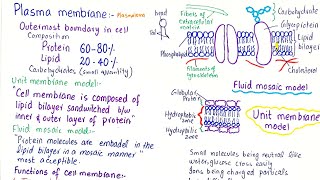 Plasma membrane:- Plasmalemma
Outermost boundary in cell
Composition
Protein 60-80%
Lipid 20-40%
Carbohydrates (small quantity)
Unit membrane model:-
"Cell membrane is composed of
lipid bilayer sandwitched b/w
inner & outer layer of protein"
Fluid mosaic model:-
"Protein molecules are embaded in the
lipid bilayer in a mosaic manner"
most acceptible.
Functions of cell membrane:-
Fibers of
extracellular
matrix
Carbohydrate
Glycoprotein
Lipid
bilayer
Phospholipid
filaments of
cytoskeleton
Cholesterol
Fluid mosaic model
Globular
Protein
Hydrophobic
zone
Hydrophilic
zone
Unit membrane
model
Small molecules being neutral like
water, glucose cross easily
Ions being charged particals